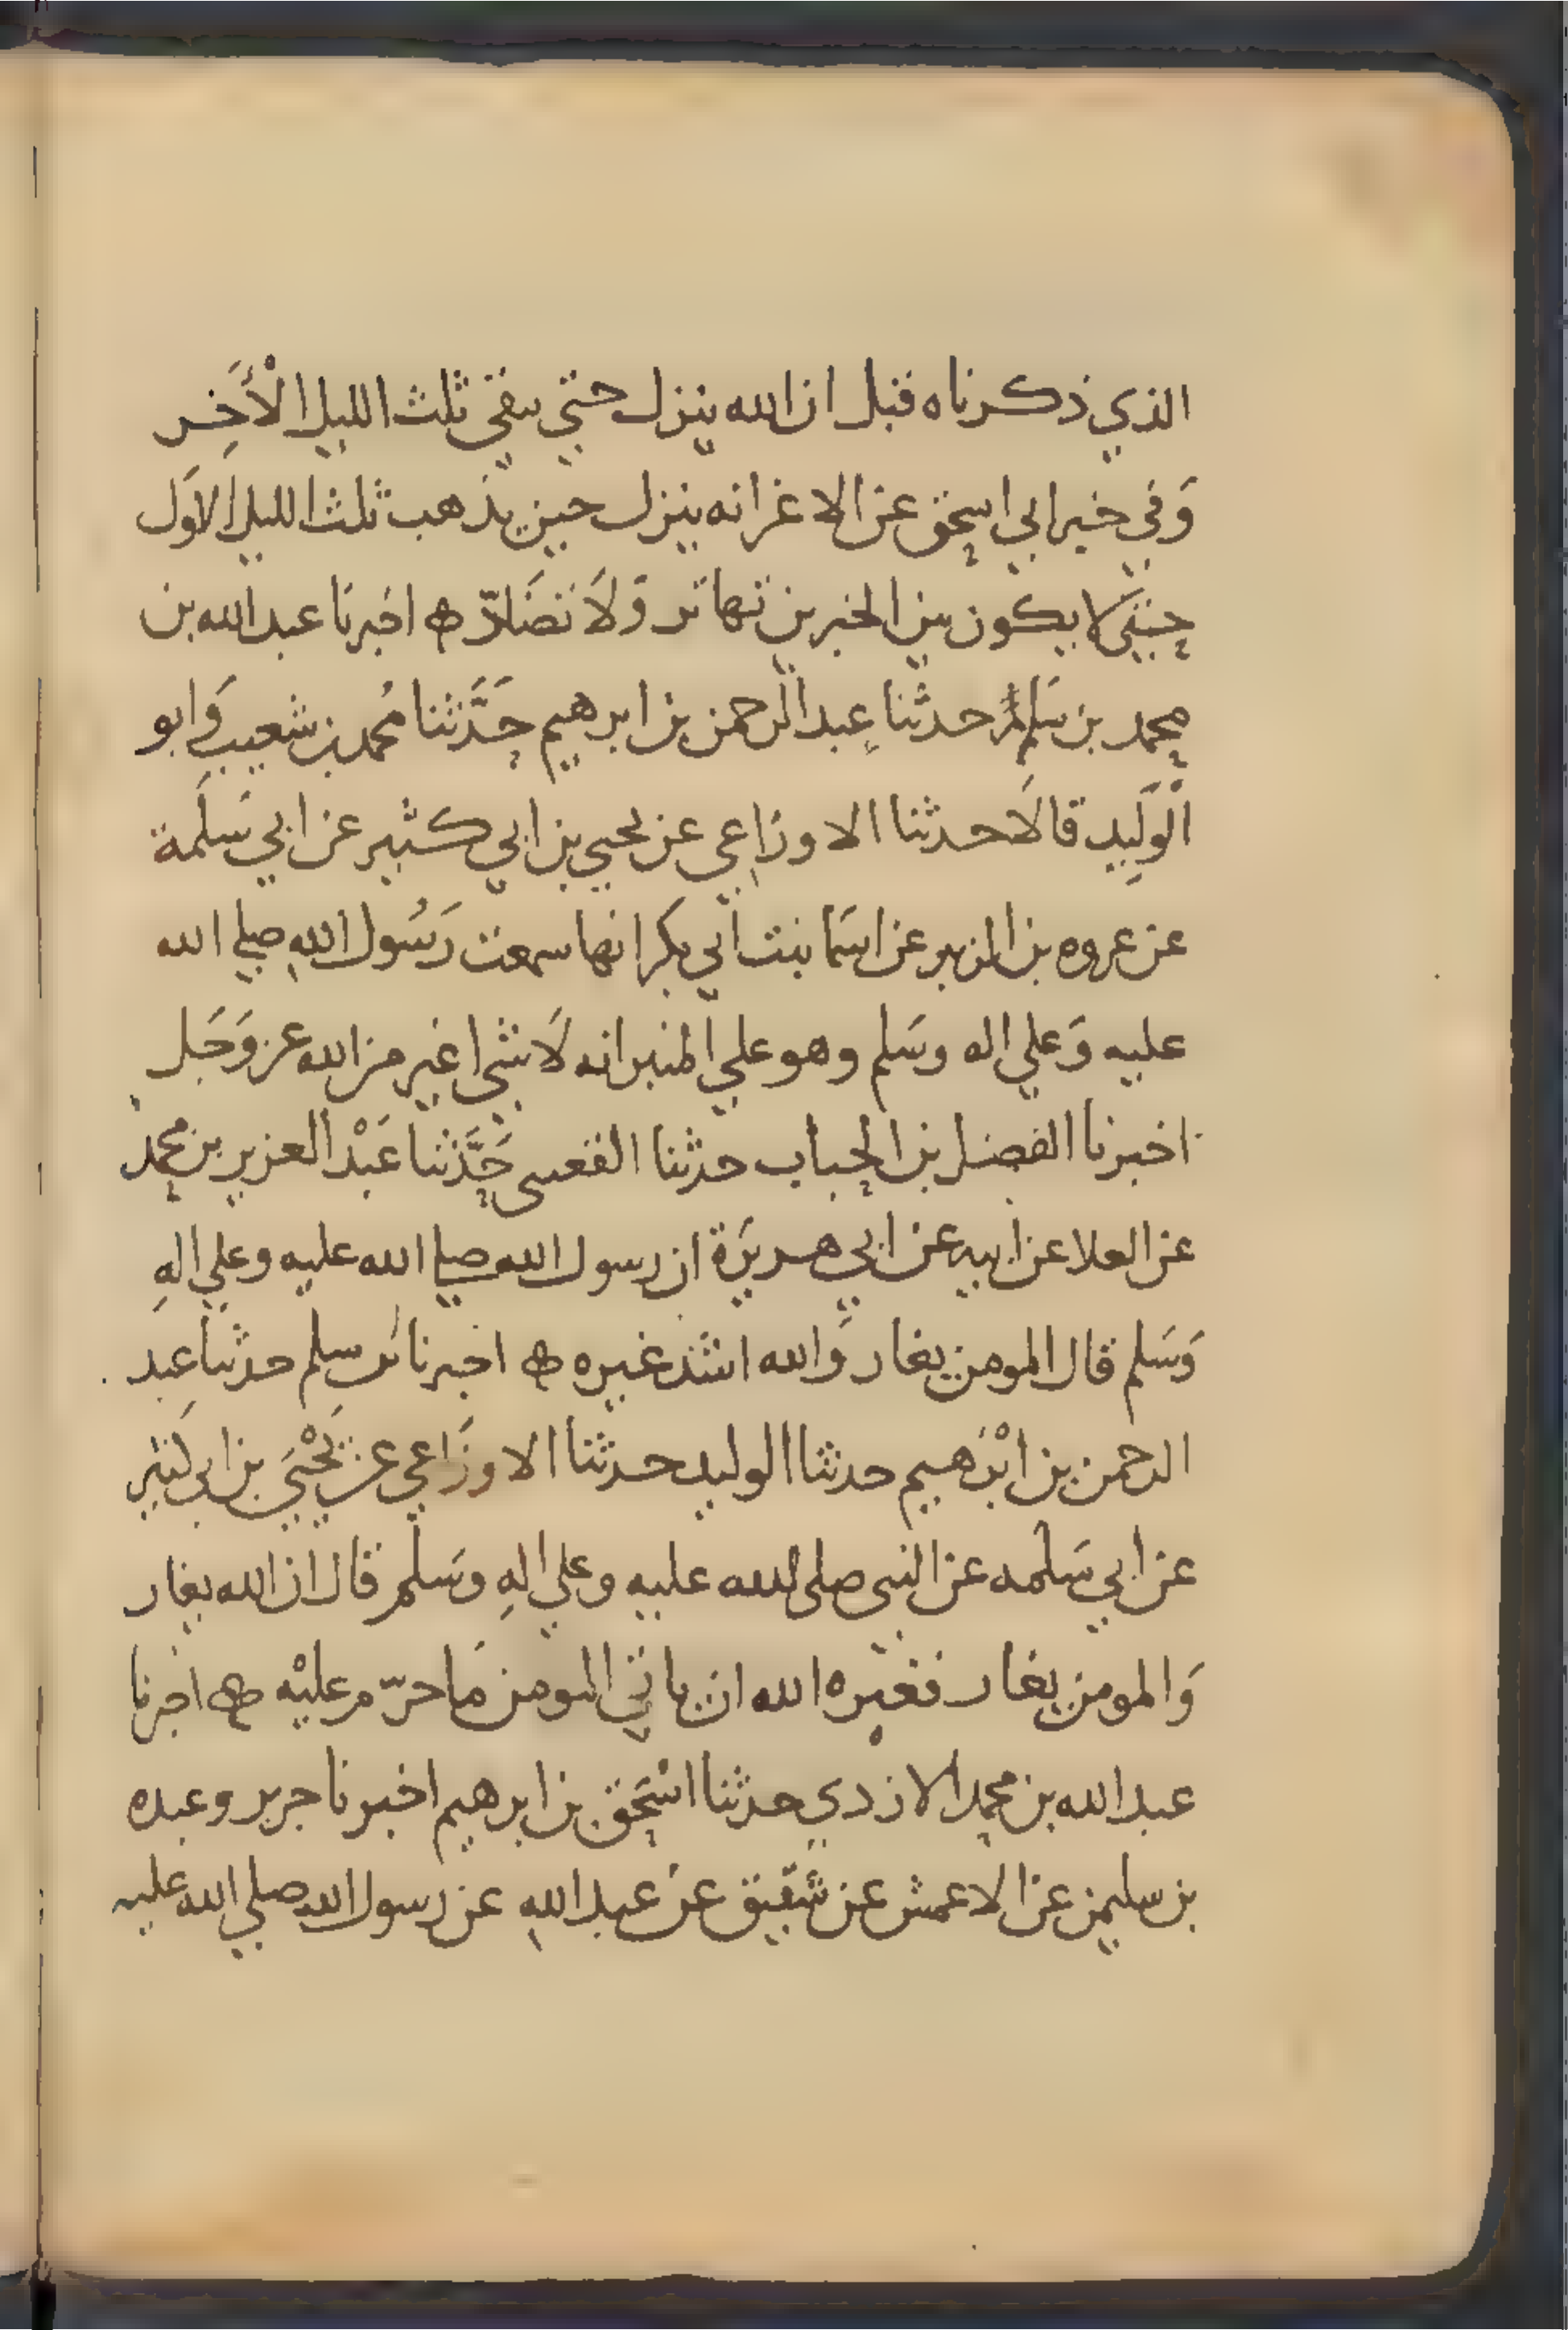 الذي ذكرناه قبل ان الله ينزل حتي يبقي ثلث الليل الْأَخِر
وَفي خبر ابي اسحق عن الاغر انه ينزل حين يذهب ثلث الليل الاول
حتي لا يكون بين الخبرين تهاتر وَلَا تضَادّ ه اخبرنا عبد الله بن
محمد بن سَلم حدثنا عبد الرحمن بن ابرهيم حَدَّثنا مُحمد بن شعيب وَابو
الْوَلِيد قالَا حدثنا الاوزَاعي عن يحيي بن ابي كثير عن ابي سَلَمة
عن عروه بن الزبير عن اسمَا بنت ابي بكر انها سمعت رَسُول اللهِ صلي الله
عليه وَعلي اله وسَلم وهو علي المنبر انه لَا شي اغير من الله عز وَجَل
اخبرنا الفضل بن الحباب حدثنا القعنبى حَدَّثنا عَبْد العزيز بن محمد
عن العلا عن ابيه عن ابي هريرَة ان رسول الله صلي الله علیه وعلي الهِ
وَسَلم قال المومن يغار وَالله اشد غيره ه اخبرنا ابن سلم حدثنا عبد
الرحمن بن ابْرَهيم حدثنا الوليد حدثنا الاوزَاعي عن يَحْيَي بن ابي كثير
عن ابي سَلمه عن النبى صلى الله عليه وعلي الهِ وسَلم قال ان الله يغار
وَالمومن يغار فغيره الله ان ياتي المومن مَا حرّم عليْه ه اخبرنا
عبد الله بن محمد الازدي حدثنا اسْحَق بن ابرهيم اخبرنا جرير وعبده
بن سليمن عن الاعمش عن شقيق عن عبد اللهِ عن رسول الله صلي الله عليه